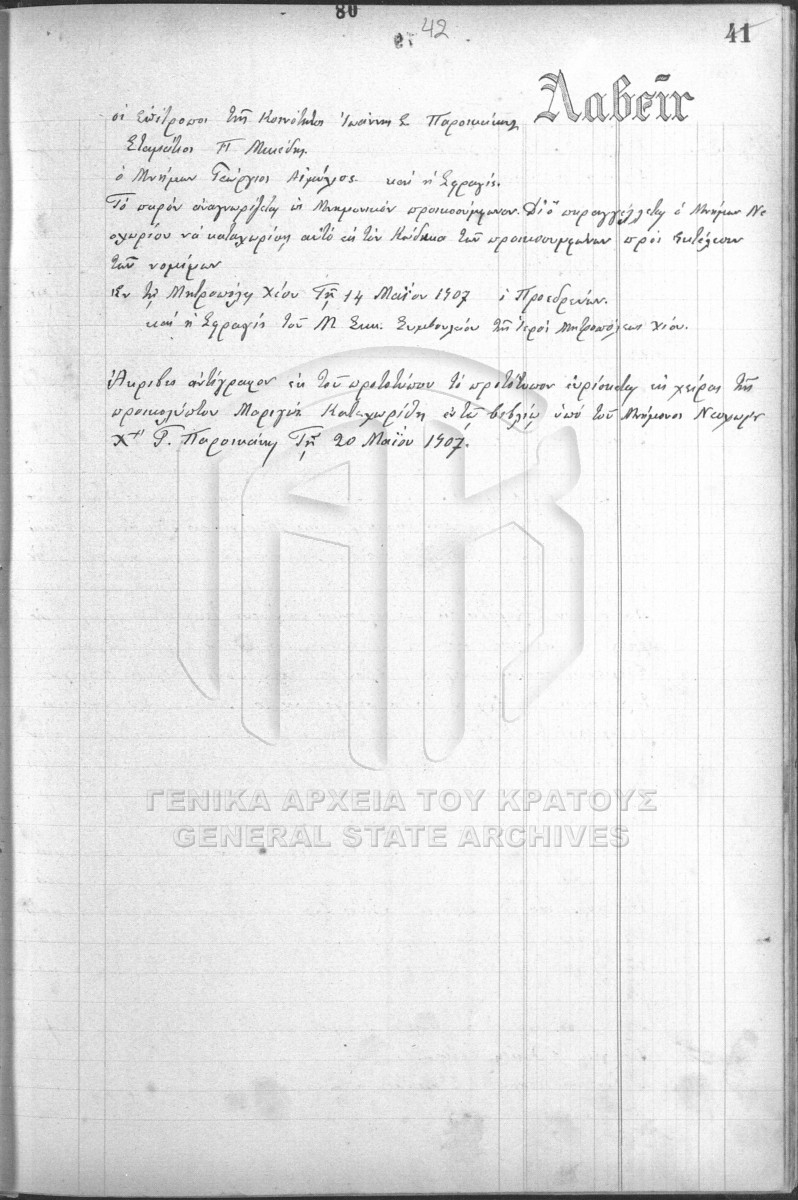 80
42
41
Λαβεῖν
οἱ Ἐπίτροποι τῆς Κοινότητος Ἰωάννης Σ Παροικάκης
Σταμάτιος Π
ὁ Μνήμων Γεώργιος καὶ ἡ Σφραγίς.
Τὸ παρὸν ἀναγνωρίζεται ὡς Μνημονικὸν προικοσύμφωνον. Διὸ παραγγέλλεται ὁ Μνήμων Νε
οχωρίου νὰ καταχωρίσῃ αὐτὸ εἰς τὸν Κώδικα τῶν προικοσυμφώνων πρὸς ἐκτέλεσιν
τῶν νομίμων
Ἐν τῇ Μητροπόλει Χίου Τῇ 14 Μαΐου 1907 ὁ Προεδρεύων.
καὶ ἡ Σφραγὶς τοῦ Μ Εκκ. Συμβουλίου τῆς Ἱερᾶς Μητροπόλεως Χίου.
Ἀκριβὲς ἀντίγραφον ἐκ τοῦ πρωτοτύπου τὸ πρωτότυπον εὑρίσκεται εἰς χεῖρας τῆς
Μαριγῶς Κατεχωρίσθη ἐν τῷ βιβλίῳ ὑπὸ τοῦ Μνήμονος Νεοχωρίου
Γ. Παροικάκη Τῇ 20 Μαΐου 1907.
ΓΕΝΙΚΑ ΑΡΧΕΙΑ ΤΟΥ ΚΡΑΤΟΥΣ
GENERAL STATE ARCHIVES